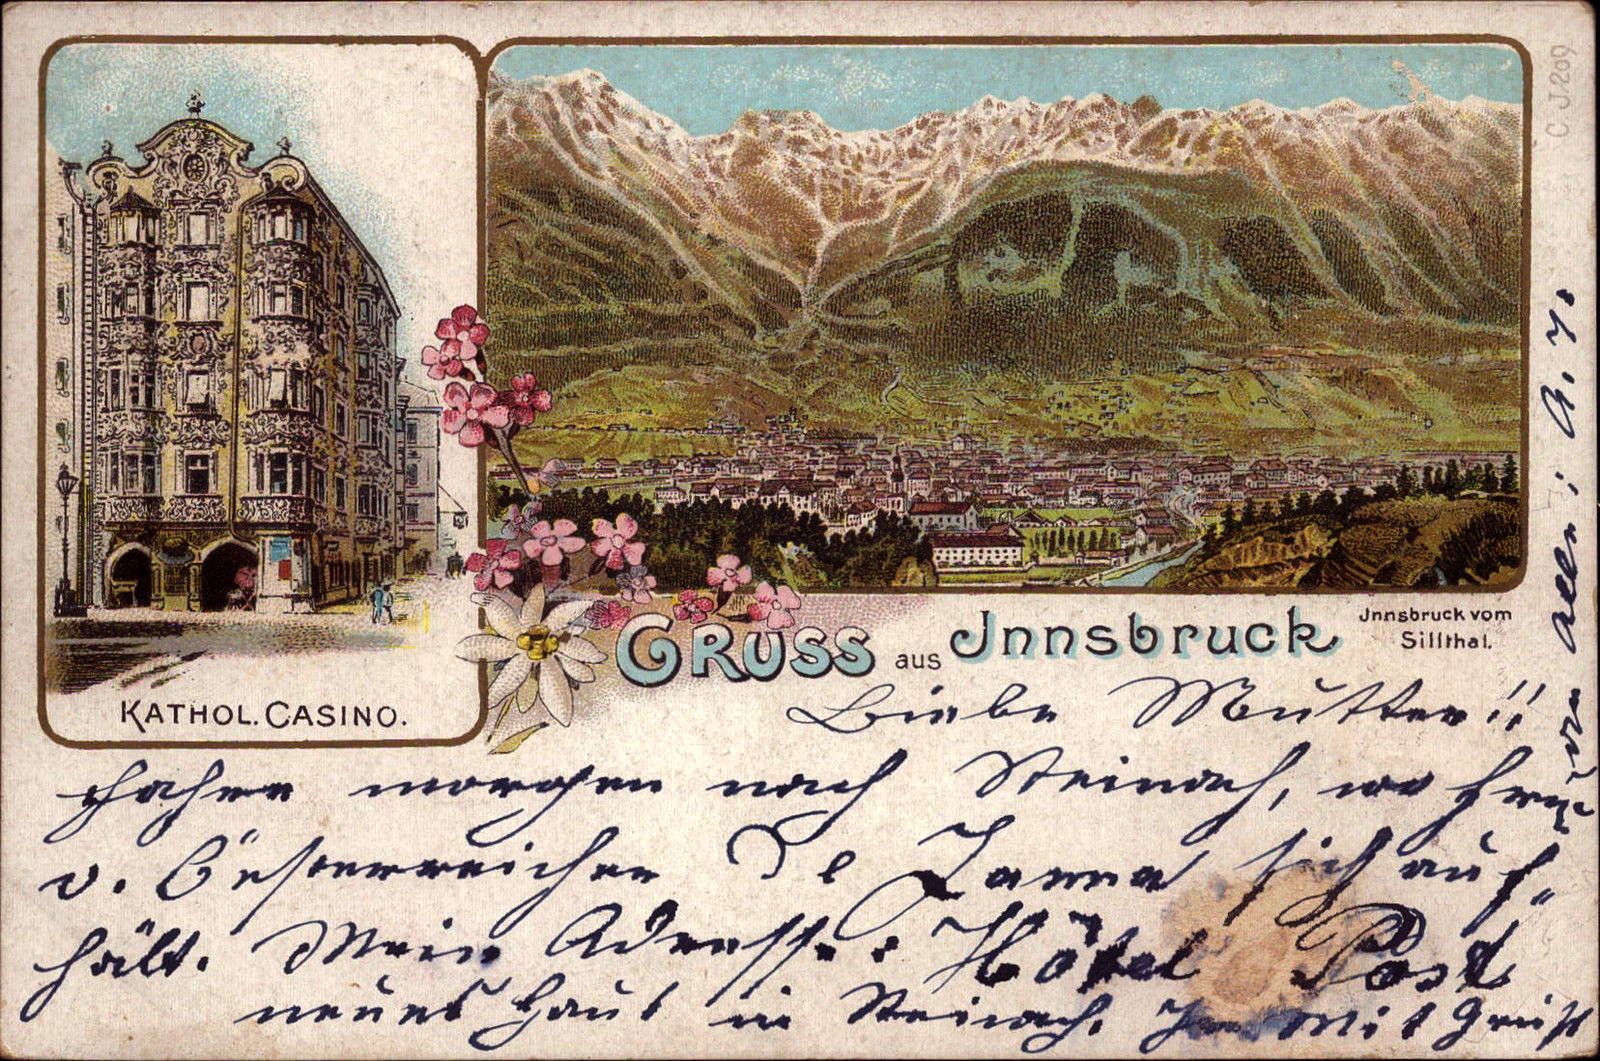 C.J.209
KATHOL. CASINO.
GRUSS aus Innsbruck
Innsbruck vom
Sillthal.
Liebe Mutter!!
fahren morgen nach Steinach, wo
v. Oesterreicher sich auf-
hält. Mein Adresse: Hôtel Post
neues Haus in Steinach. Mit Gruß
an allen; A. Y.